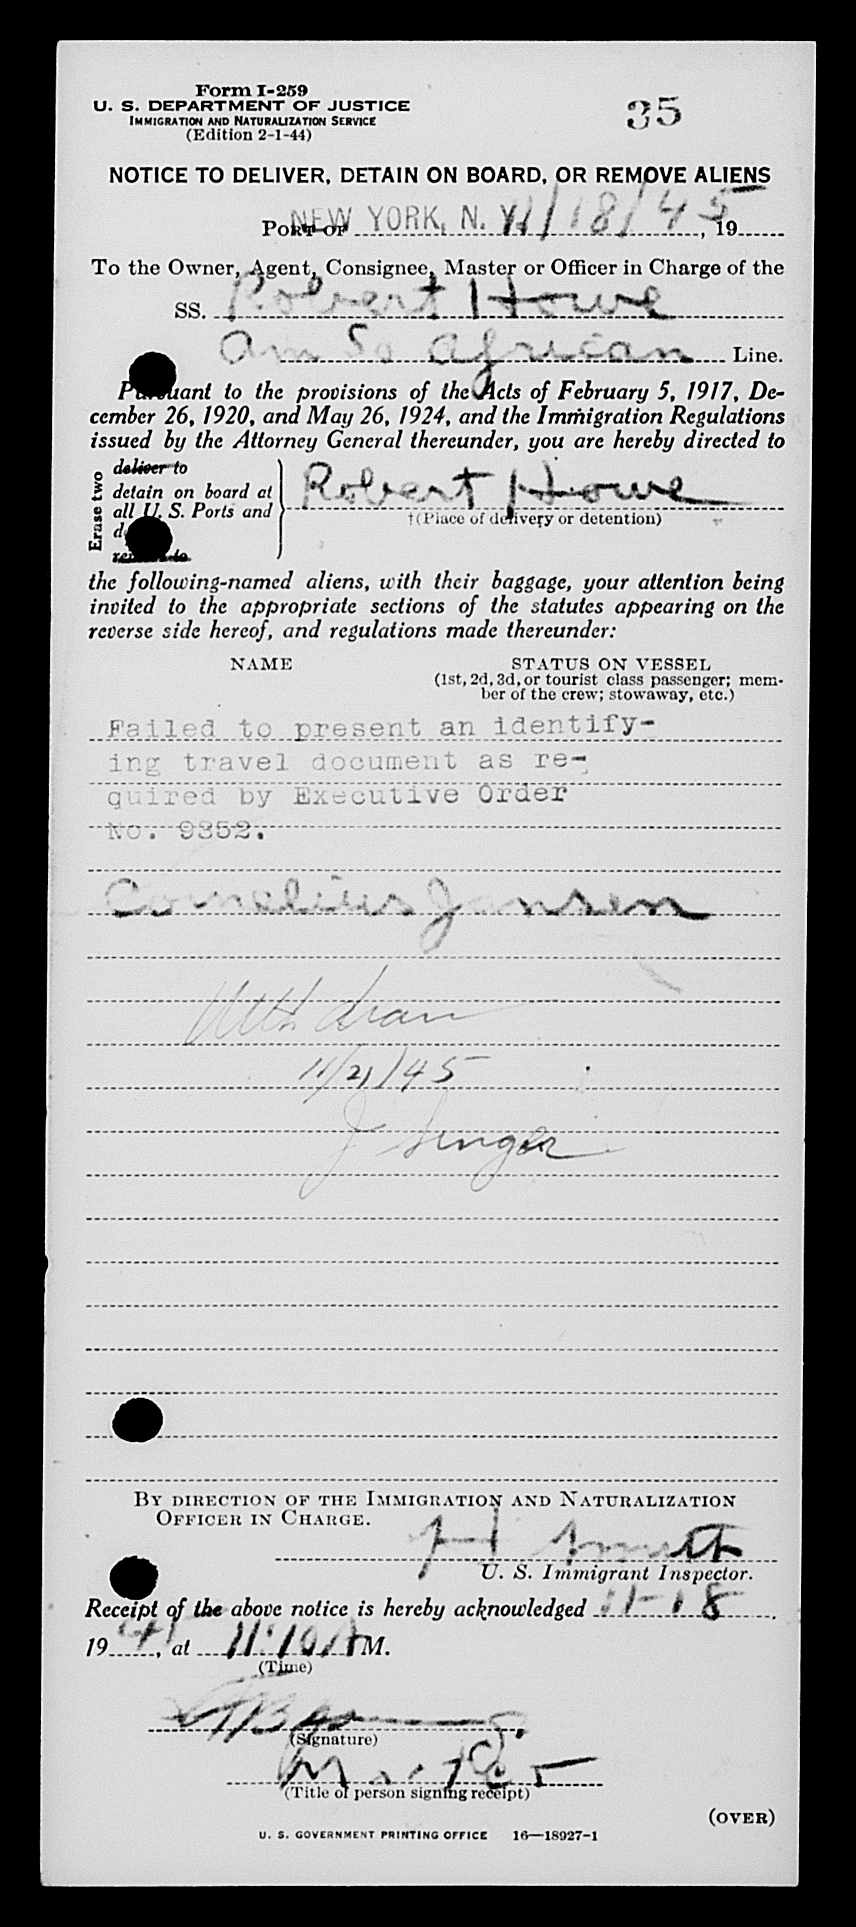 Form I-259
U. S. DEPARTMENT OF JUSTICE
IMMIGRATION AND NATURALIZATION SERVICE
(Edition 2-1-44)
35
NOTICE TO DELIVER, DETAIN ON BOARD, OR REMOVE ALIENS
PORT OF NEW YORK, N. Y. 11/18/45, 19
To the Owner, Agent, Consignee, Master or Officer in Charge of the
SS. Robert Howe
Am So African Line.
Pursuant to the provisions of the Acts of February 5, 1917, De-
cember 26, 1920, and May 26, 1924, and the Immigration Regulations
issued by the Attorney General thereunder, you are hereby directed to
Erase two
deliver to
detain on board at
all U. S. Ports and
Robert Howe
†(Place of delivery or detention)
the following-named aliens, with their baggage, your attention being
invited to the appropriate sections of the statutes appearing on the
reverse side hereof, and regulations made thereunder:
NAME STATUS ON VESSEL
(1st, 2d, 3d, or tourist class passenger; mem-
ber of the crew; stowaway, etc.)
Failed to present an identify-
ing travel document as re-
quired by Executive Order
No. 9352.
Cornelius Jansen
Withdrawn
11/21/45
J Singer
BY DIRECTION OF THE IMMIGRATION AND NATURALIZATION
OFFICER IN CHARGE.
H Smith
U. S. Immigrant Inspector.
Receipt of the above notice is hereby acknowledged 11-18,
19 45, at 11:10 A M.
(Time)
(Signature)
Master
(Title of person signing receipt)
(OVER)
U. S. GOVERNMENT PRINTING OFFICE 16—18927-1